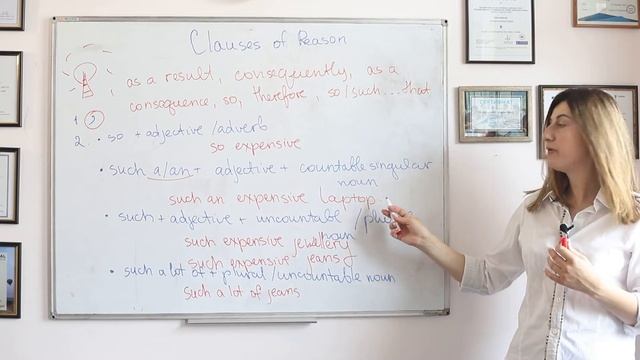 Clauses of Reason
as a result, consequently, as a
consequence, so, therefore, so/such...that
1 ,
2. • so + adjective/adverb
so expensive
• such a/an + adjective + countable singular
noun
such an expensive laptop
• such + adjective + uncountable /
noun
such expensive jewellery
such expensive jeans
• such a lot of + plural/uncountable noun
such a lot of jeans